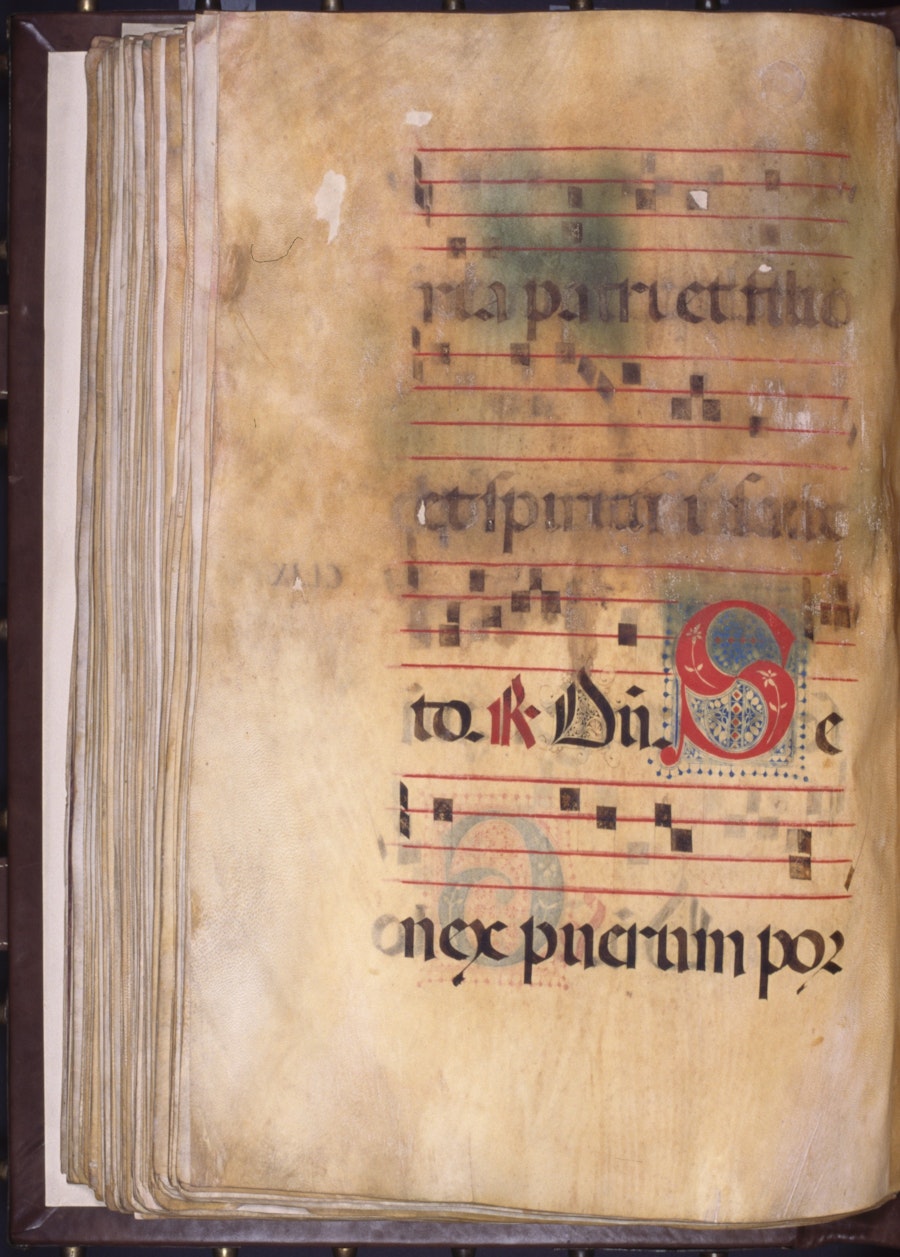 ria patri et filio
et spiritui sancto
to. R. Dn̄. Se
nex puerum por